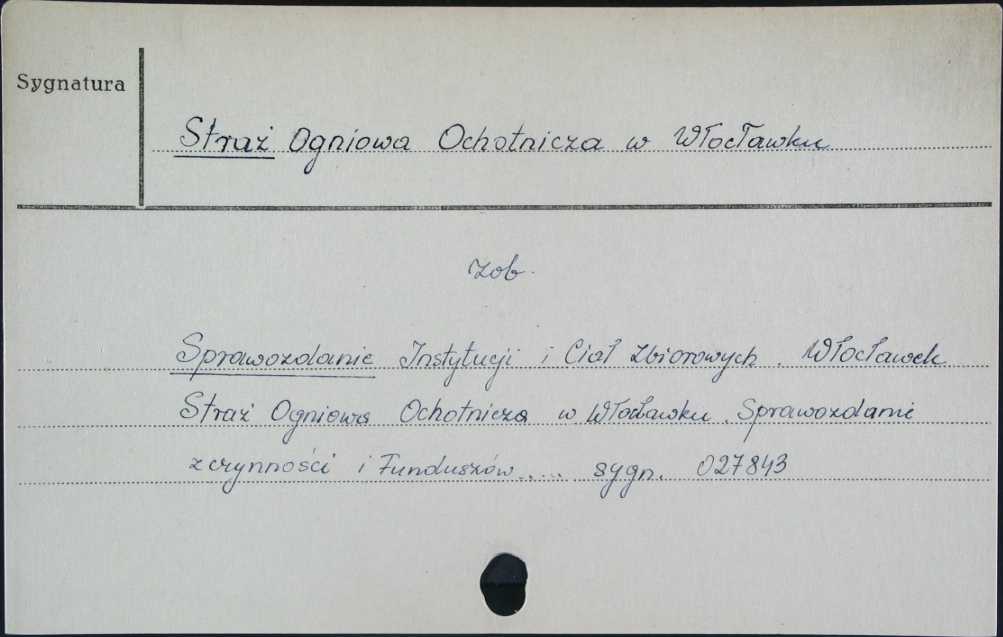 Sygnatura
Straż Ogniowa Ochotnicza w Włocławku
zob.
Sprawozdanie Instytucji i Ciał Zbiorowych. Włocławek
Straż Ogniowa Ochotnicza w Włocławku. Sprawozdanie
z czynności i Funduszów.... sygn. 027843